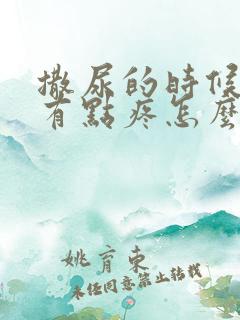 撒尿的時候
有點疼怎麼
姚育東
未任同意禁止转载